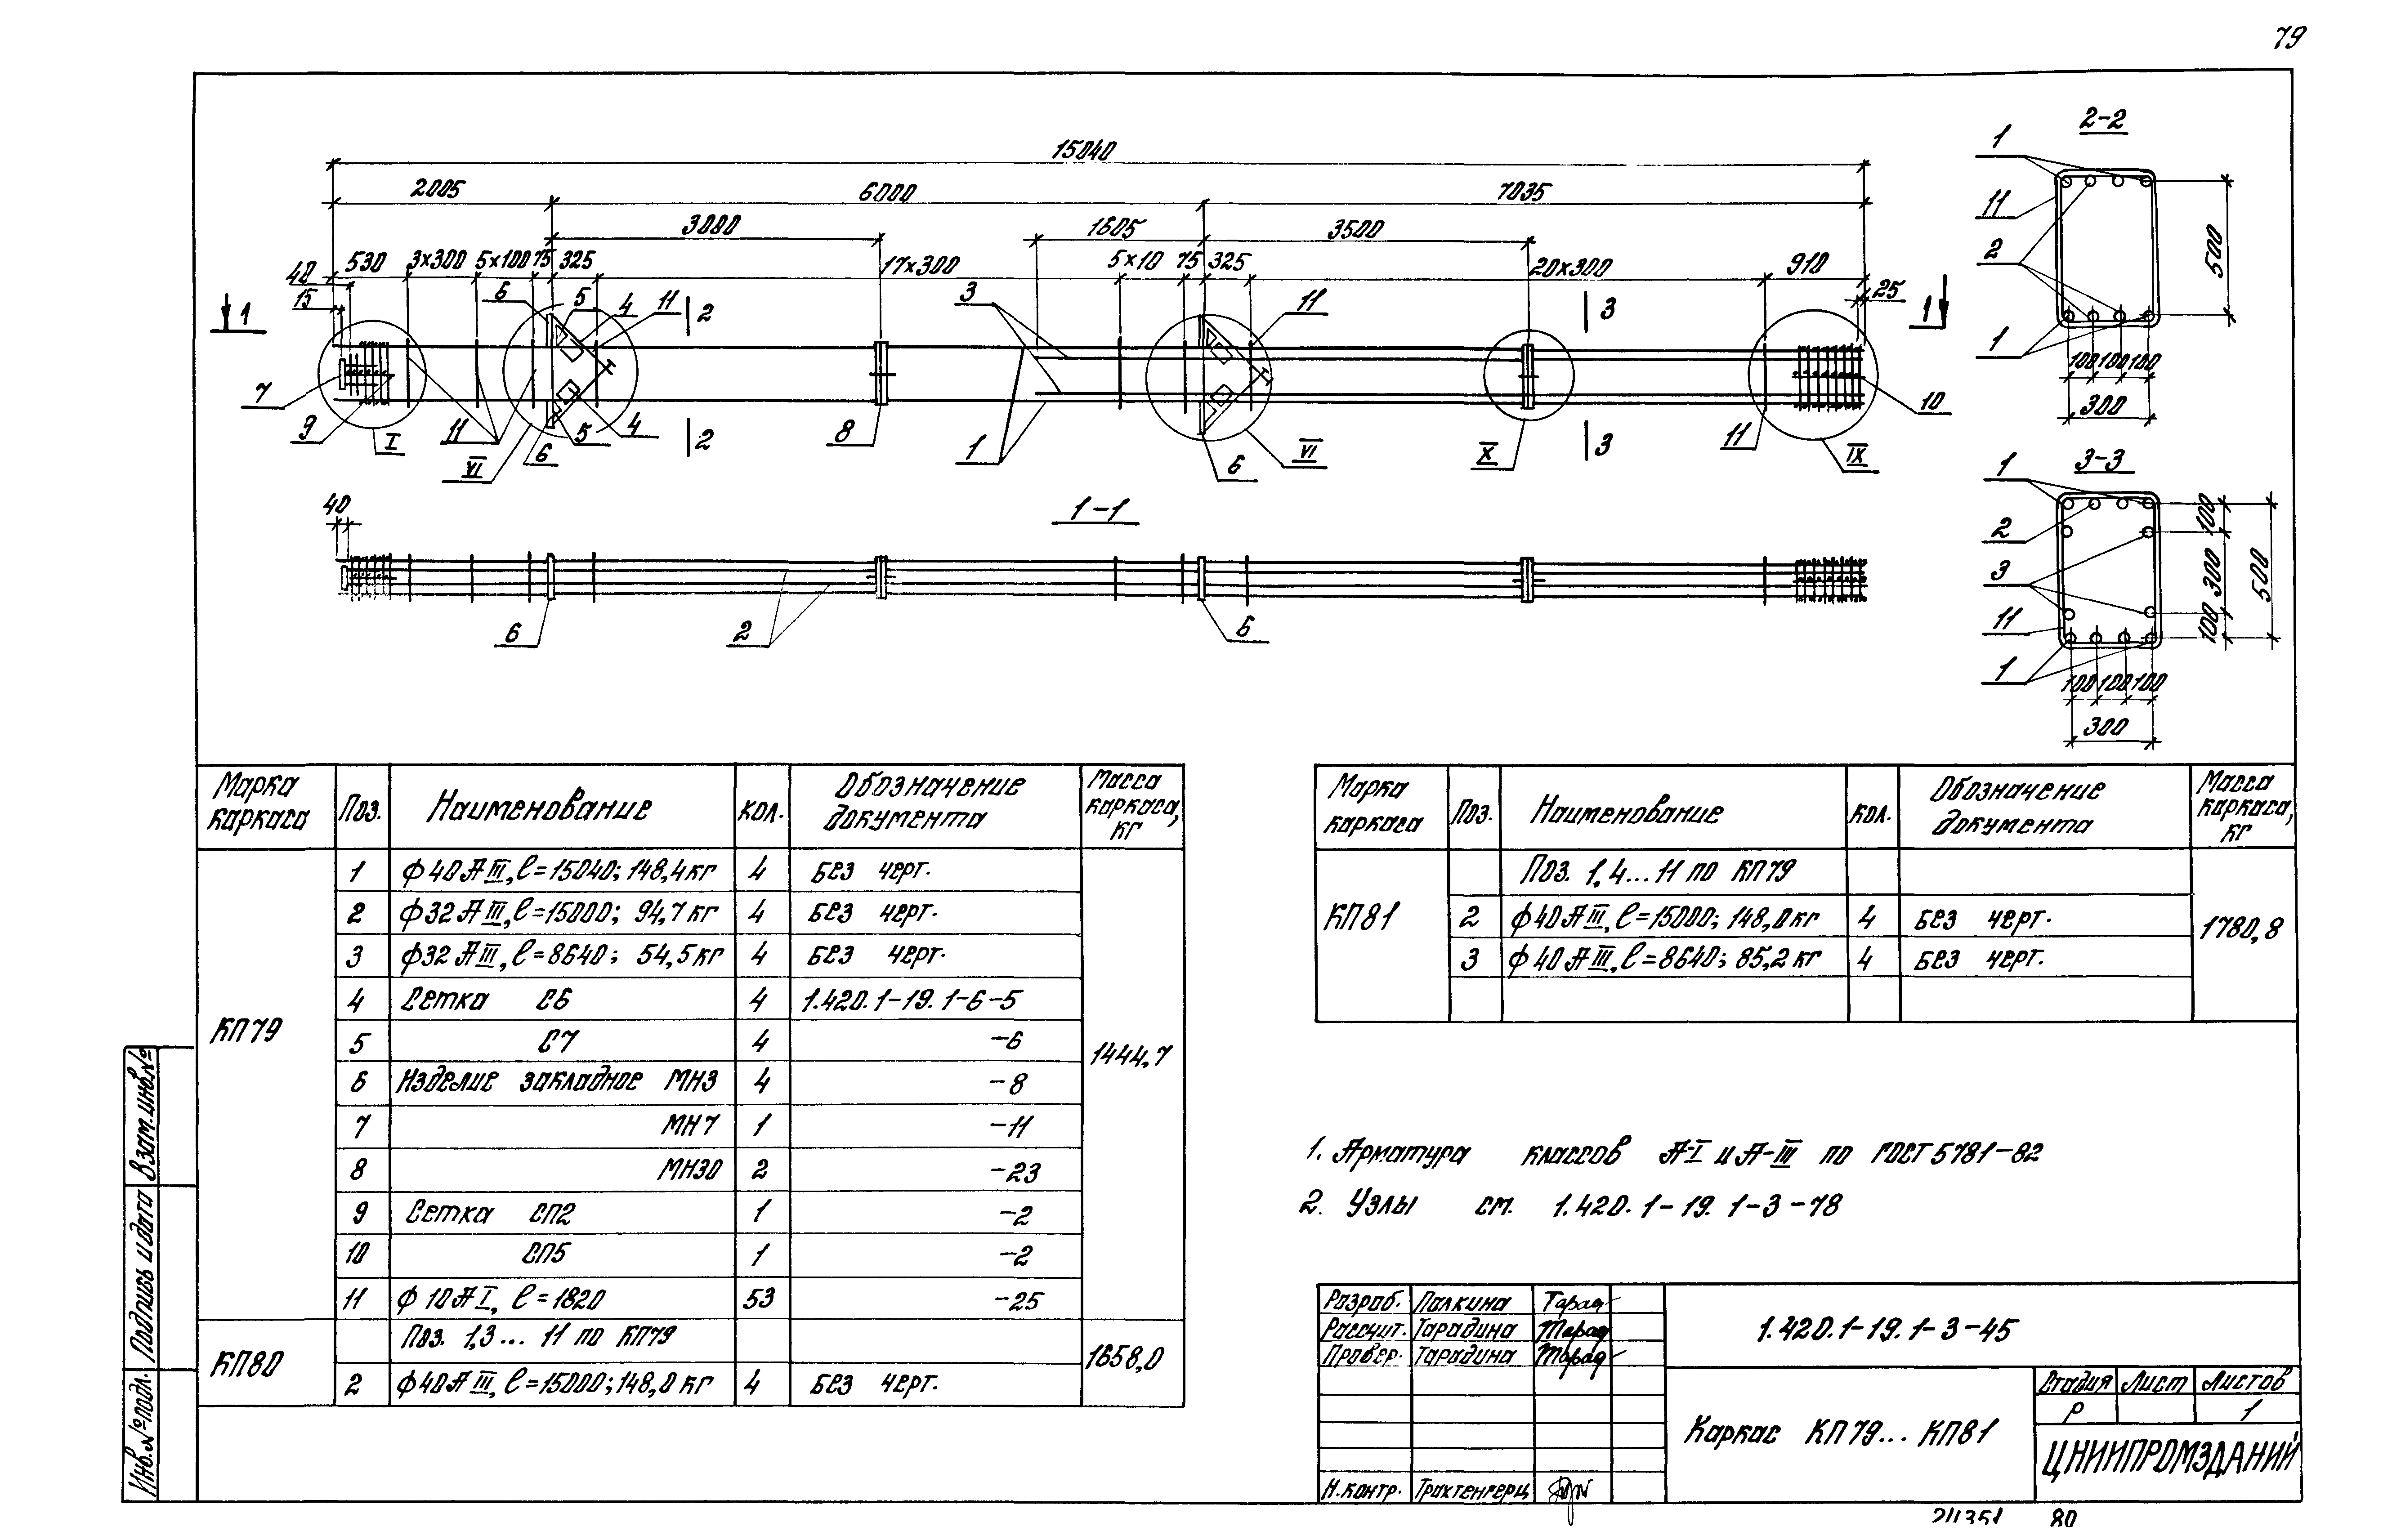 79
15040
2005 6000 7035
3000 1605 3500
40 530 3×300 5×100 75 325 17×300 5×10 75 325 20×300 910
15 25
1 6 5 4 11 2 3 11 3 1
7 9 I 11 VI 6 5 4 2 8 1 6 VI X 3 11 IX 10
1-1
40
6 2 6
2-2
1
11
2
1
500
100 100 100
300
3-3
1
2
3
11
1
100
300
100
500
100 100 100
300
Марка каркаса Поз. Наименование Кол. Обозначение документа Масса каркаса, кг
КП79 1444,7
1 ф40АIII, ℓ=15040; 148,4кг 4 Без черт.
2 ф32АIII, ℓ=15000; 94,7кг 4 Без черт.
3 ф32АIII, ℓ=8640; 54,5кг 4 Без черт.
4 Сетка С6 4 1.420.1-19.1-6-5
5 С7 4 -6
6 Изделие закладное МН3 4 -8
7 МН7 1 -11
8 МН30 2 -23
9 Сетка СП2 1 -2
10 СП5 1 -2
11 ф10АI, ℓ=1820 53 -25
КП80 1658,0
Поз. 1,3... 11 по КП79
2 ф40АIII, ℓ=15000; 148,0кг 4 Без черт.
Марка каркаса Поз. Наименование Кол. Обозначение документа Масса каркаса, кг
Поз. 1,4...11 по КП79
КП81 2 ф40АIII, ℓ=15000; 148,0кг 4 Без черт. 1780,8
3 ф40АIII, ℓ=8640; 85,2кг 4 Без черт.
1. Арматура классов А-I и А-III по ГОСТ 5781-82
2. Узлы см. 1.420.1-19.1-3-78
Разраб. Палкина
Рассчит. Тарадина
Провер. Тарадина
Н.контр. Трахтенгерц
1.420.1-19.1-3-45
Каркас КП79... КП81
Стадия Лист Листов
Р 1
ЦНИИПРОМЗДАНИЙ
Инв.№ подл. Подпись и дата Взам.инв.№
21351 80